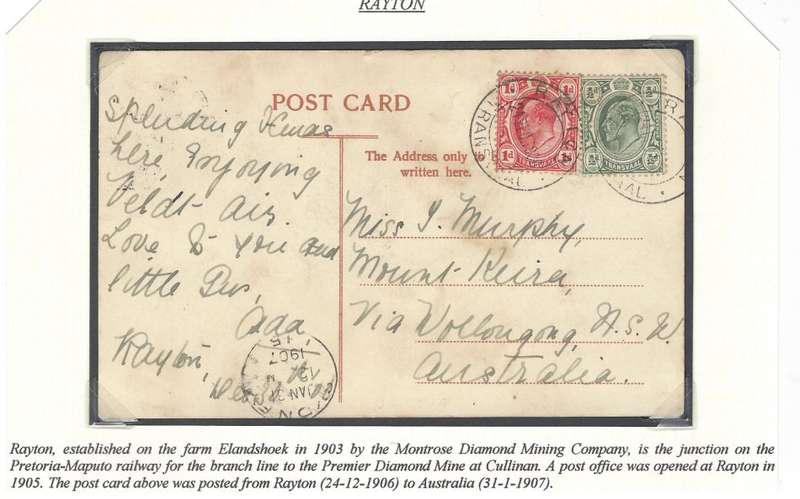 RAYTON
POST CARD
Spending Xmas
here, Enjoying
Veldt air.
Love to you and
little
Ada
Rayton,
The Address only to be
written here.
1d 1d
1d 1d
TRANSVAAL
½d ½d
½d ½d
TRANSVAAL
TRANSVAAL
Miss I. Murphy,
Mount Keira,
Via Wollongong, N.S.W
Australia.
SYDNEY
JAN
12
1907
15
Rayton, established on the farm Elandshoek in 1903 by the Montrose Diamond Mining Company, is the junction on the
Pretoria-Maputo railway for the branch line to the Premier Diamond Mine at Cullinan. A post office was opened at Rayton in
1905. The post card above was posted from Rayton (24-12-1906) to Australia (31-1-1907).